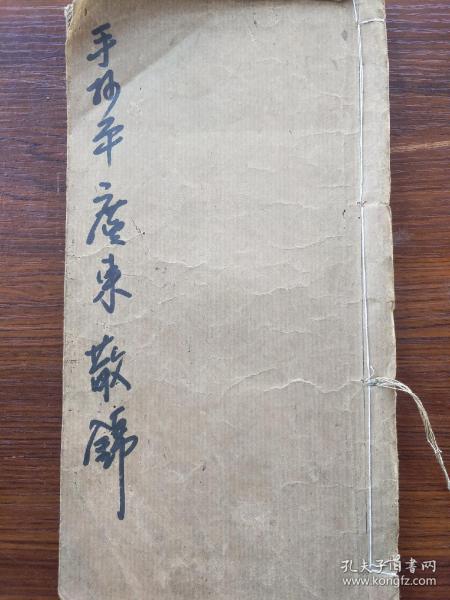 手抄平 廣東 散錦
孔夫子旧书网
www.kongfz.com